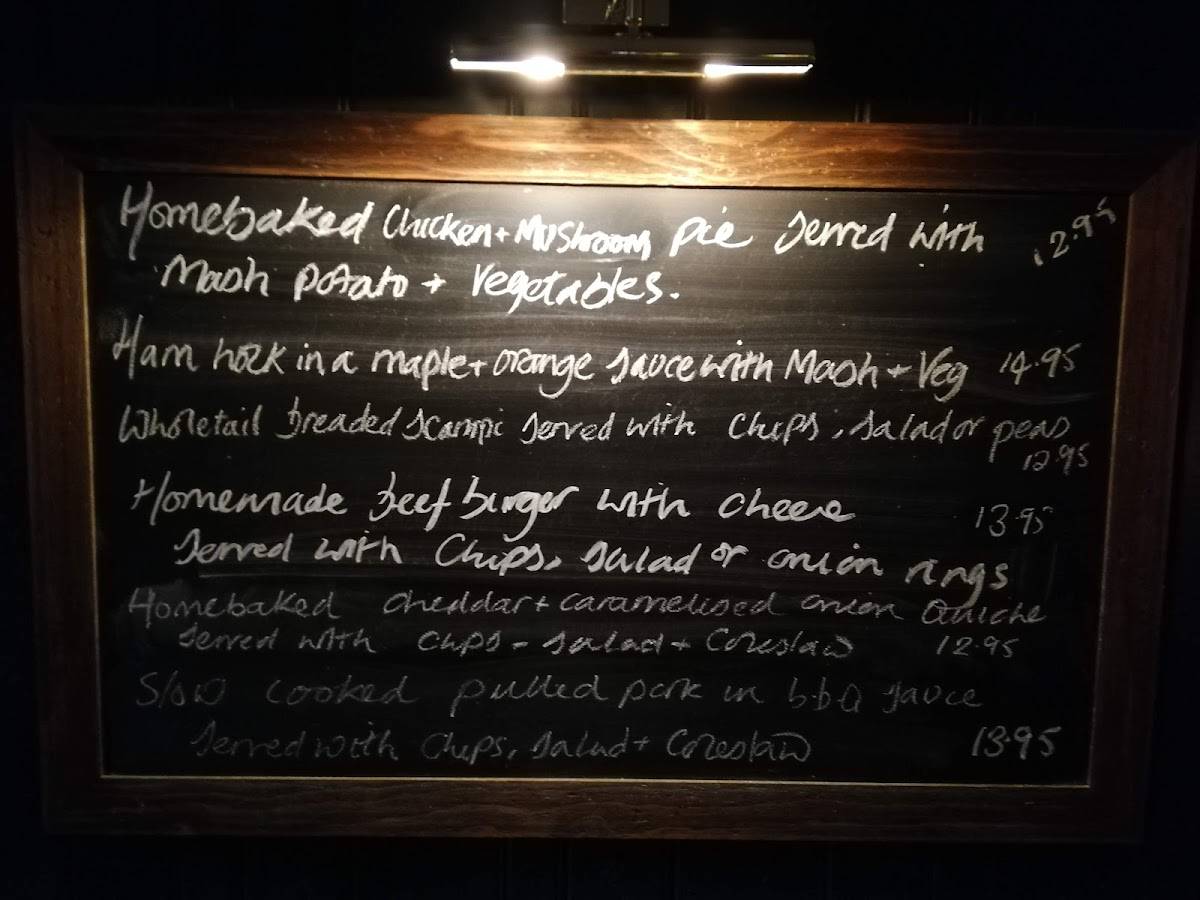 Homebaked Chicken + Mushroom pie served with 12.95
Mash potato + Vegetables.
Ham hock in a maple + orange sauce with Mash + Veg 14.95
Wholetail breaded scampi served with chips, salad or peas
12.95
Homemade beef burger with cheese 13.95
served with chips, salad or onion rings
Homebaked cheddar + caramelised onion Quiche
served with chips - salad + Coleslaw 12.95
Slow cooked pulled pork in bbq sauce
served with chips, salad + Coleslaw 13.95